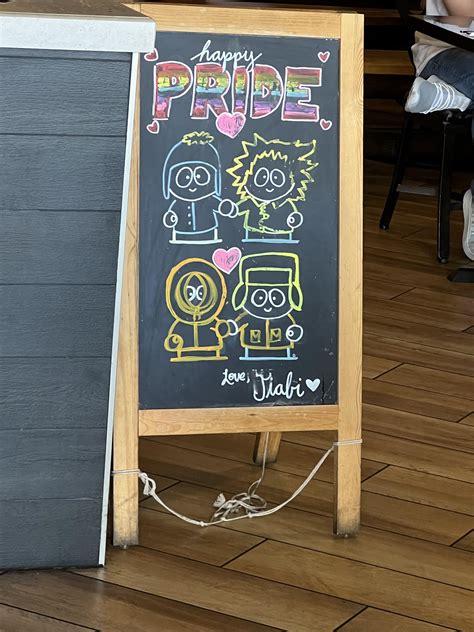 happy
PRIDE
Love, Tiabi